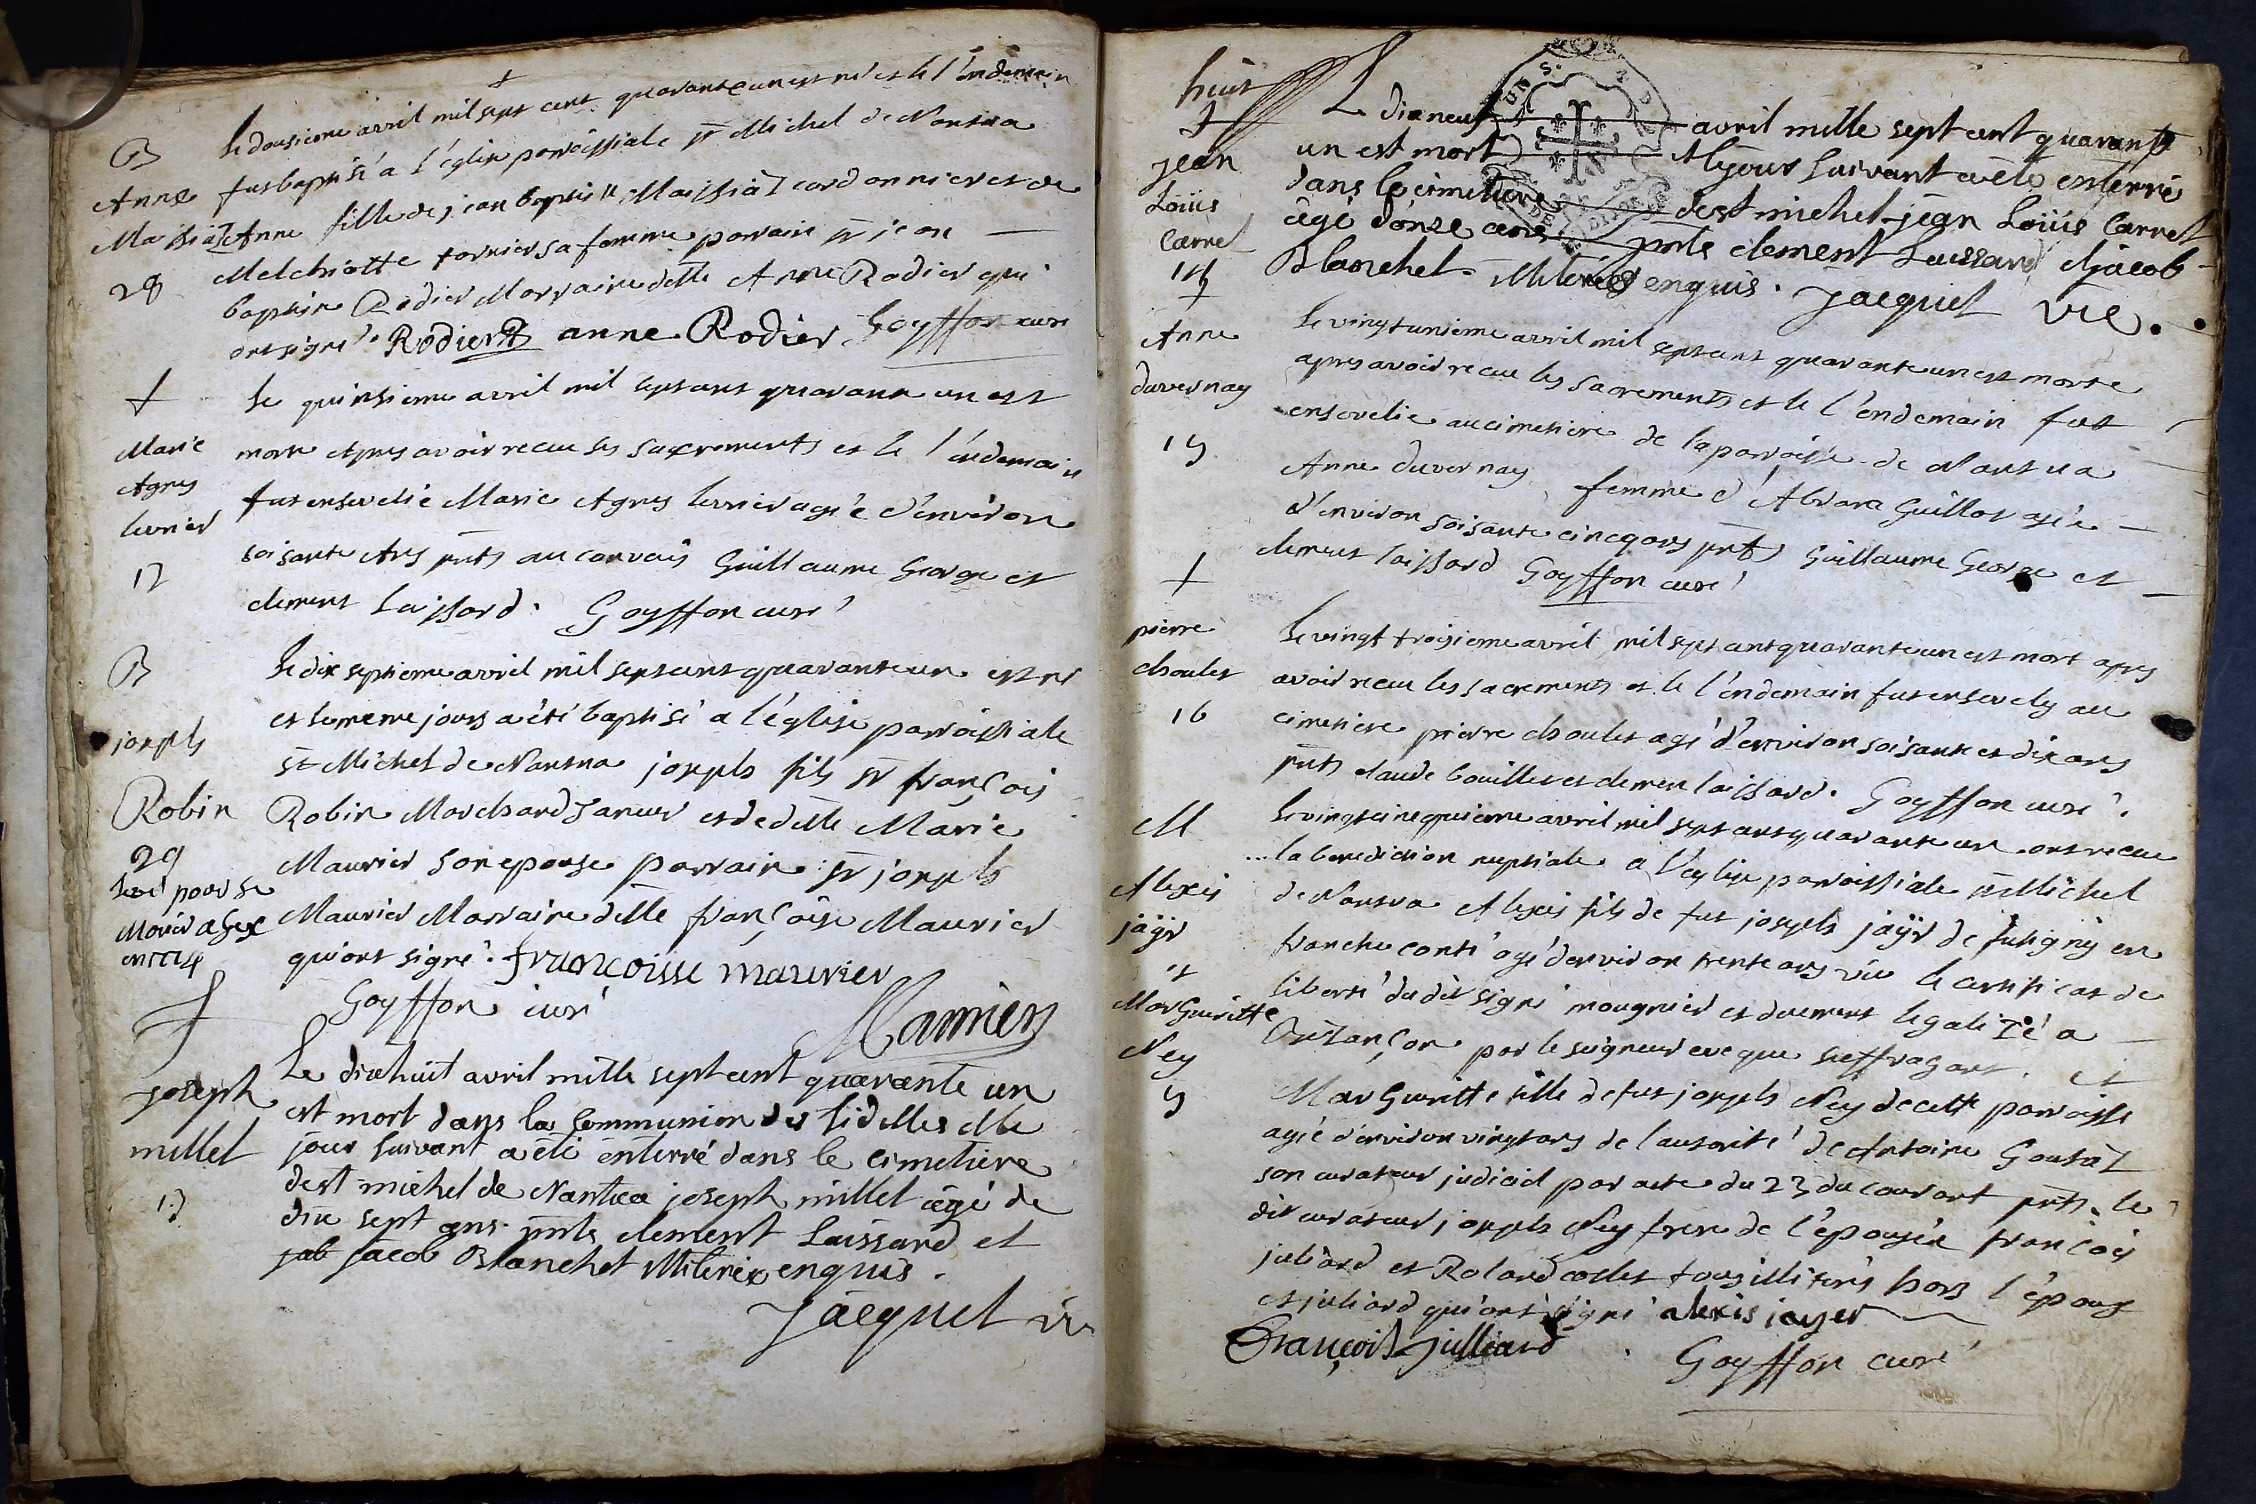 B
Anne
Massiat
28
Le dousieme avril mil sept cent quarante un est né et le l'endemain
fut baptisé a l'eglise parroissiale st Michel de Nantua
Anne fille de jean baptiste Massiat cordonnier et de
Melchiotte tornier sa femme parrain sr jean
baptiste Rodier Marraine delle Anne Rodier qui
ont signé. Rodier anne Rodier Goyffon curé
Marie
Agnes
levrier
12
Le quinsieme avril mil sept cent quarante un est
morte Apres avoir recue les sacrements et le l'endemain
fut ensevelie Marie Agnes levrier agée d'environ
soisante Ans pnts au convois Guillaume George et
clement laissard. Goyffon curé
B
joseph
Robin
29
Le dix septieme avril mil sept cent quarante un est né
et le meme jours a été baptisé a l'église parroissiale
st Michel de Nantua joseph fils sr françois
Robin Marchand Taneur et de delle Marie
Maurier son epouse parrain sr joseph
Maurier Marraine delle françoise Maurier
qui ont signé. françoisse maurier
Goyffon curé
joseph
millet
13
Le dixehuit avril mille sept cent quarante un
est mort dans la Communion des fidelles et le
jour suivant a été enterré dans le cimetiere
de st michel de Nantua joseph millet âgé de
dix sept ans pnts clement Laissard et
jab jacob Blanchet illiterés enquis.
Jacquet vic
huit
jean
Loüis
Carret
14
Le dixneuf avril mille sept cent quarante
un est mort et le jour suivant a été enterré
dans le cimetiere de st michel jean Loüis Carret
âgé d'onze ans pnts clement Laissard et jacob
Blanchet illiterés enquis. Jacquet vic.
Anne
duvernay
15
Le vingt unieme avril mil sept cent quarante un est morte
apres avoir recue les sacrements et le l'endemain fut
ensevelie au cimetiere de la parroisse de Nantua
Anne duvernay femme d'Abram Guillot agée
d'environ soisante cinq ans pnts Guillaume George et
clement laissard Goyffon curé
pierre
choulet
16
Le vingt troisieme avril mil sept cent quarante un est mort apres
avoir recue les sacrements et le l'endemain fut ensevely au
cimetiere pierre choulet agé d'environ soisante et dix ans
pnts claude bouillet et clement laissard. Goyffon curé.
M
Alexis
jäyr
et
Margueritte
Ney
5
Le vingt cinquieme avril mil sept cent quarante un ont recue
la benediction nuptiale a l'eglise parroissiale st Michel
de Nantua Alexis fils de fut joseph jäyr de en
franche conté agé d'environ trente ans vüe le certificat de
liberté du dit signé mougnier et duement legalizé a
par le seigneur eveque suffragant. et
Margueritte fille de fut joseph Ney de cette parroisse
agée d'environ vingt ans de l'autorité de Antoine
son curateur judiciel par acte du 23 du courant pnts le
dit curateur joseph Ney frere de l'épousée françois
juliard et Roland collet tous illiterés hors l'époux
et juliard qui ont signé alexis jayer
François Julliard. Goyffon curé